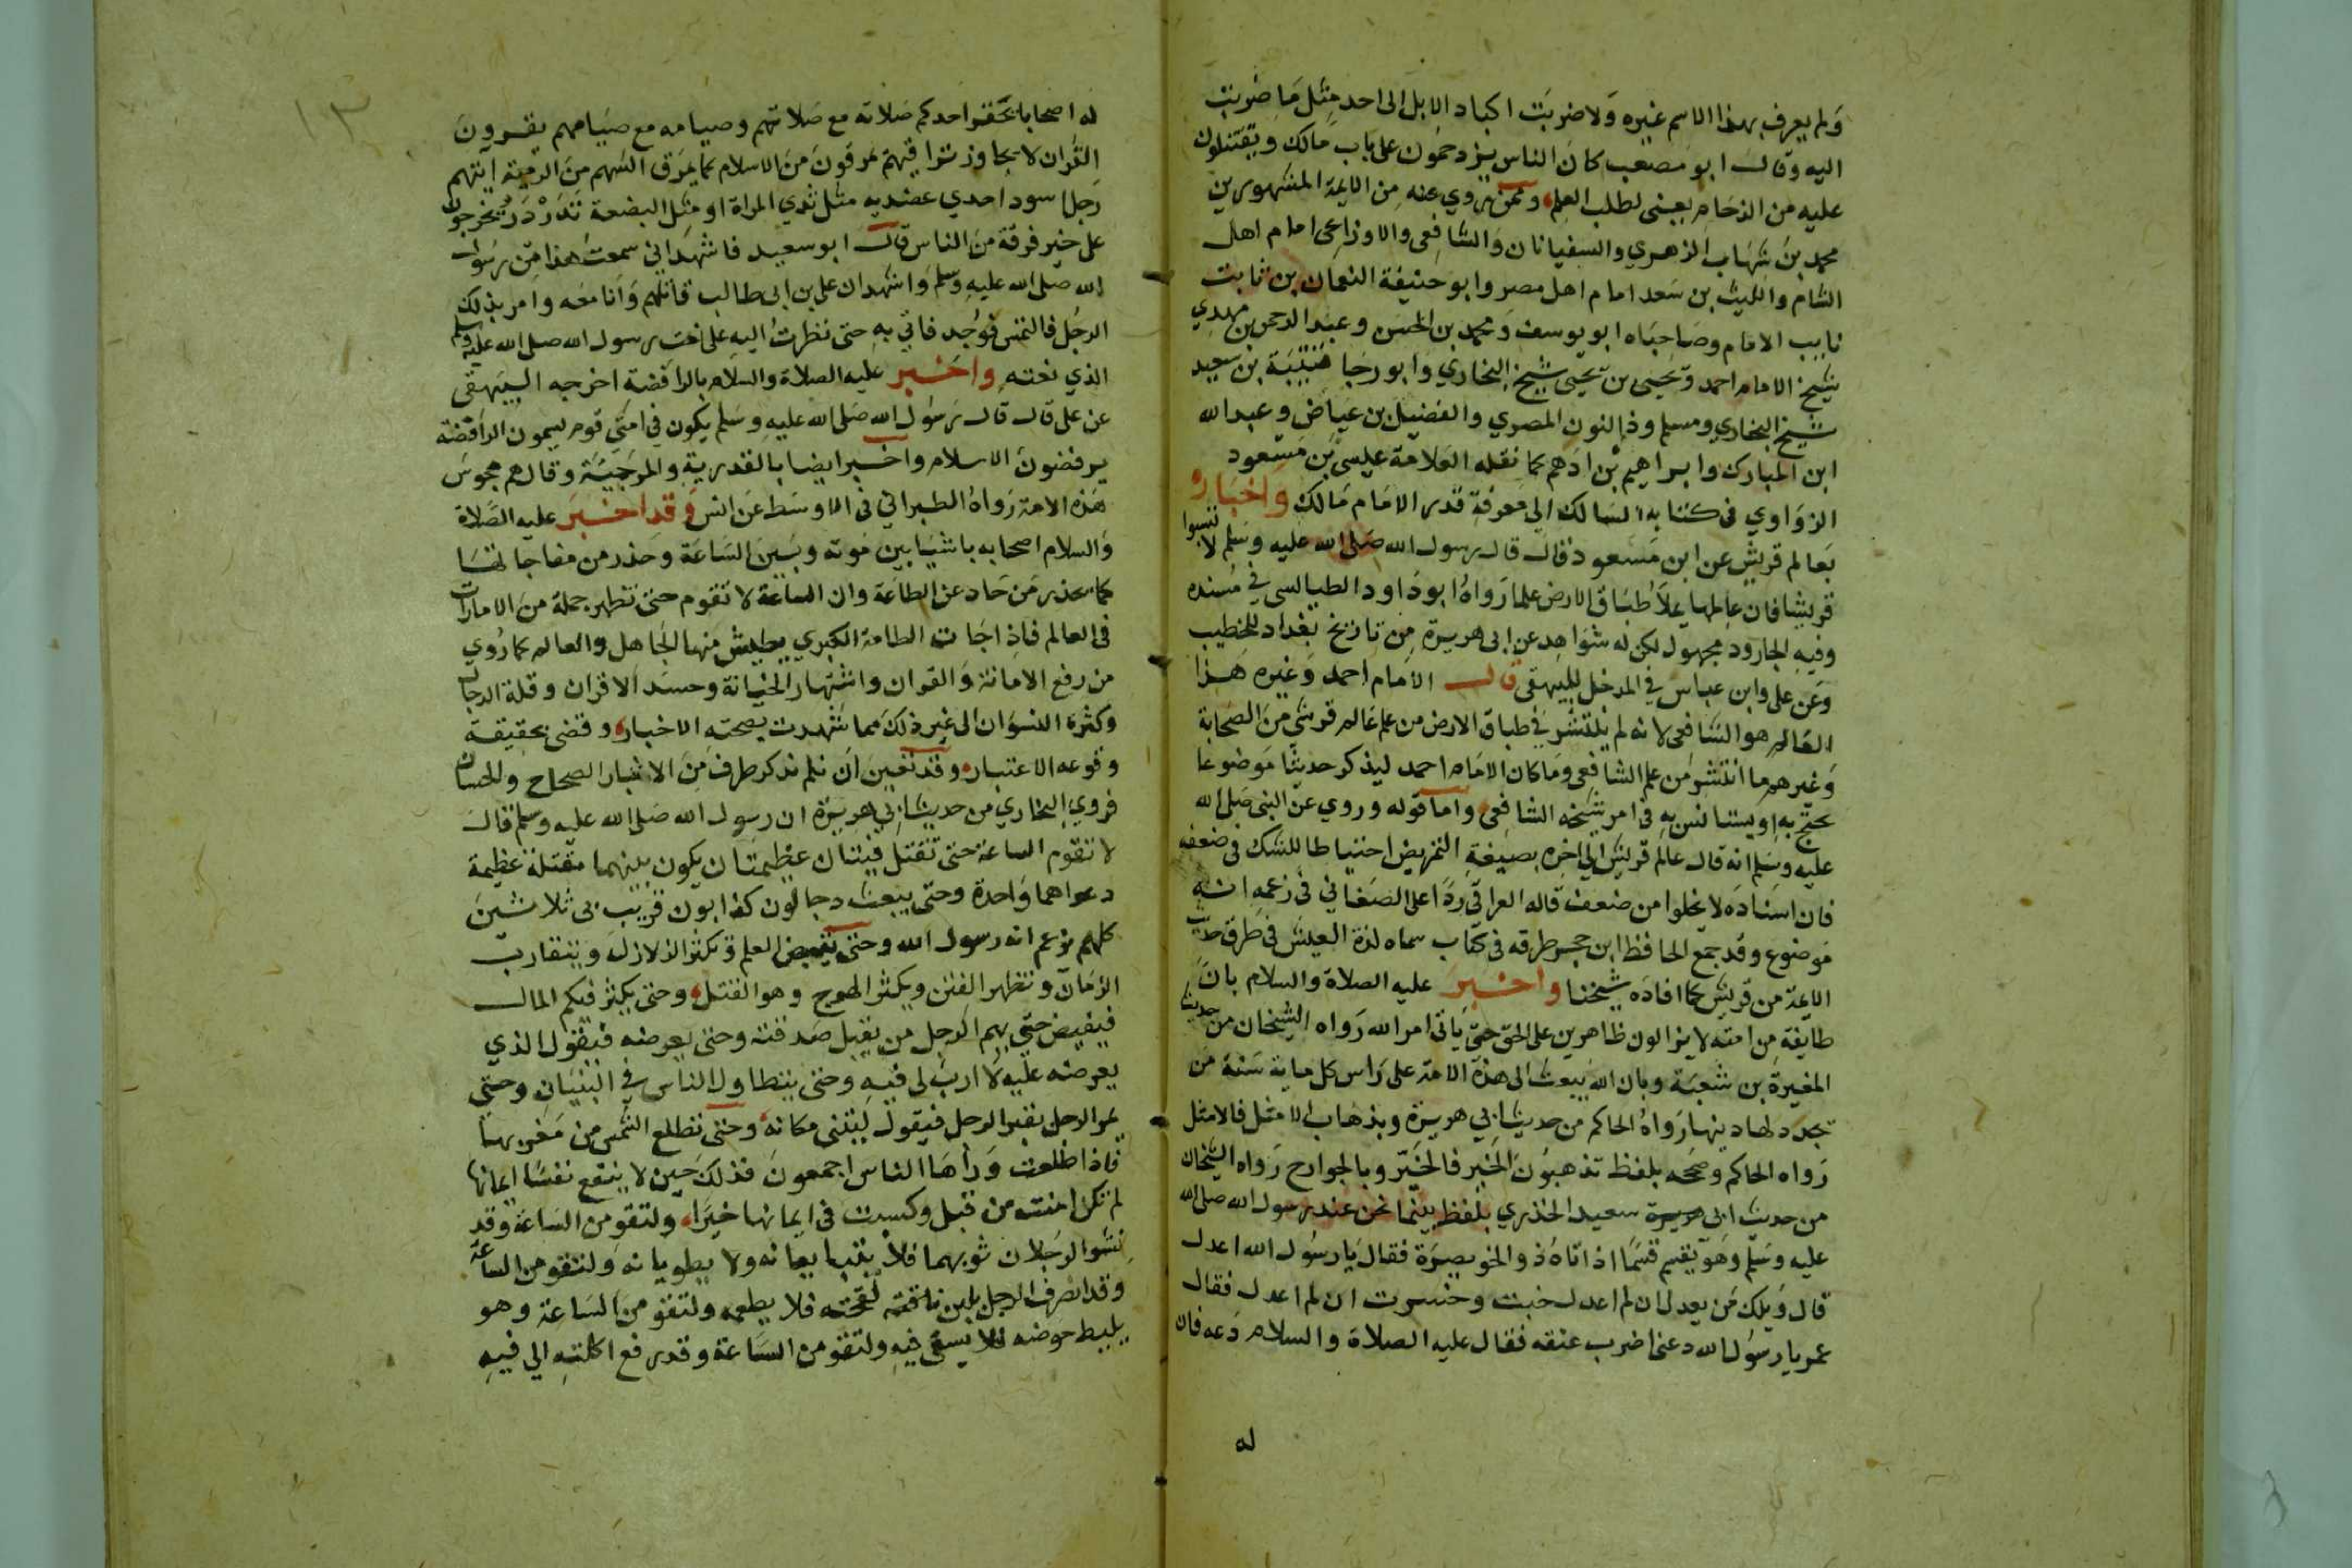 ولم يعرف بهذا الاسم غيره ولا ضربت اكباد الابل الى احد مثل ما ضربت
اليه وقال ابو مصعب كان الناس يزدحمون على باب مالك ويقتتلون
عليه من الزحام يعنى لطلب العلم وممن روي عنه من الايمة المشهورين
محمد بن شهاب الزهري والسفيانان والشافعى والاوزاعى امام اهل
الشام والليث بن سعد امام اهل مصر وابو حنيفة النعمان بن ثابت
نايب الامام وصاحباه ابو يوسف ومحمد بن الحسن وعبد الرحمن بن مهدي
شيخ الامام احمد ويحيى بن يحيى شيخ البخاري وابو رجا قتيبة بن سعيد
شيخ البخاري ومسلم وذا النون المصري والفضيل بن عياض وعبد الله
ابن المبارك وابراهيم بن ادهم كما نقله العلامة عيسى بن مسعود
الزواوي فى كتابه السالك الى معرفة قدر الامام مالك واخباره
بعالم قريش عن ابن مسعود قال قال رسول الله صلى الله عليه وسلم لا تسبوا
قريشا فان عالمها يملأ طباق الارض علما رواه ابو داود الطيالسى في مسنده
وفيه الجارود مجهول لكن له شواهد عن ابى هريرة من تاريخ بغداد للخطيب
وعن على وابن عباس في المدخل للبيهقى قال الامام احمد وغيره هذا
العالم هو الشافعى لانه لم ينتشر في طباق الارض من علم عالم قرشى من الصحابة
وغيرهم ما انتشر من علم الشافعى وما كان الامام احمد ليذكر حديثا موضوعا
يحتج به او يستانس به فى امر شيخه الشافعى واما قوله وروي عن النبى صلى الله
عليه وسلم انه قال عالم قريش الى اخره بصيغة التمريض احتياطا للشك فى ضعفه
فان اسناده لا يخلوا من ضعف قاله العراقى ردا على الصغانى فى زعمه انه
موضوع وقد جمع الحافظ ابن حجر طرقه فى كتاب سماه لذة العيش فى طرق حديث
الايمة من قريش كما افاده شيخنا واخبر عليه الصلاة والسلام بان
طايفة من امته لا يزالون ظاهرين على الحق حتى ياتى امر الله رواه الشيخان من حديث
المغيرة بن شعبة وبان الله يبعث الى هذه الامة على راس كل ماية سنة من
يجدد لها دينها رواه الحاكم من حديث ابي هريرة وبذهاب الامثل فالامثل
رواه الحاكم وصححه بلفظ تذهبون الخير فالخير وبالخوارج رواه الشيخان
من حديث ابى هريرة سعيد الخدري بلفظ بينما نحن عند رسول الله صلى الله
عليه وسلم وهو يقسم قسما اذ اتاه ذو الخويصرة فقال يا رسول الله اعدل
قال ويلك من يعدل ان لم اعدل خبت وخسرت ان لم اعدل فقال
عمر يا رسول الله دعنى اضرب عنقه فقال عليه الصلاة والسلام دعه فان
له
١٣
له اصحابا يحقر احدكم صلاته مع صلاتهم وصيامه مع صيامهم يقرون
القران لا يجاوز تراقيهم يمرقون من الاسلام كما يمرق السهم من الرمية ايتهم
رجل اسود احدي عضديه مثل ثدي المراة او مثل البضعة تدردر يخرجون
على خير فرقة من الناس قال ابو سعيد فاشهد اني سمعت هذا من رسول
الله صلى الله عليه وسلم واشهد ان على بن ابى طالب قاتلهم وانا معه وامر بذلك
الرجل فالتمس فوجد فاتي به حتى نظرت اليه على نعت رسول الله صلى الله عليه وسلم
الذي نعته واخبر عليه الصلاة والسلام بالرافضة اخرجه البيهقى
عن على قال قال رسول الله صلى الله عليه وسلم يكون فى امتى قوم يسمون الرافضة
يرفضون الاسلام واخبر ايضا بالقدرية والمرجية وقال هم مجوس
هذه الامة رواه الطبراني فى الاوسط عن انس وقد اخبر عليه الصلاة
والسلام اصحابه باشيا بين موته وبين الساعة وحذر من مفاجاتها
كما يحذر من حاد عن الطاعة وان الساعة لا تقوم حتى تظهر جملة من الامارات
فى العالم فاذا جات الطامة الكبري يطيش منها الجاهل والعالم كما رُوي
من رفع الامانة والقران واشتهار الخيانة وحسد الاقران وقلة الرجال
وكثرة النسوان الى غير ذلك مما شهدت بصحته الاخبار وقضى بحقيقة
وقوعه الاعتبار وقد تعين ان نلم بذكر طرف من الاخبار الصحاح والحسان
فروي البخاري من حديث ابي هريرة ان رسول الله صلى الله عليه وسلم قال
لا تقوم الساعة حتى تقتتل فيتان عظيمتان يكون بينهما مقتلة عظيمة
دعواهما واحدة وحتى يبعث دجالون كذابون قريب من ثلاثين
كلهم يزعم انه رسول الله وحتى يقبض العلم وتكثر الزلازل ويتقارب
الزمان وتظهر الفتن ويكثر الهرج وهو القتل وحتى يكثر فيكم المال
فيفيض حتى يهم الرجل من يقبل صدقته وحتى يعرضه فيقول الذي
يعرضه عليه لا ارب لى فيه وحتى يتطاول الناس في البنيان وحتى
يمر الرجل بقبر الرجل فيقول ليتنى مكانه وحتى تطلع الشمس من مغربها
فاذا طلعت وراها الناس اجمعون فذلك حين لا ينفع نفسا ايمانها
لم تكن امنت من قبل او كسبت فى ايمانها خيرا ولتقومن الساعة وقد
نشر الرجلان ثوبهما فلا يتبايعانه ولا يطويانه ولتقومن الساعة
وقد انصرف الرجل بلبن ناقته لقحته فلا يطعمه ولتقومن الساعة وهو
يليط حوضه فلا يسقى فيه ولتقومن الساعة وقد رفع اكلته الي فيه